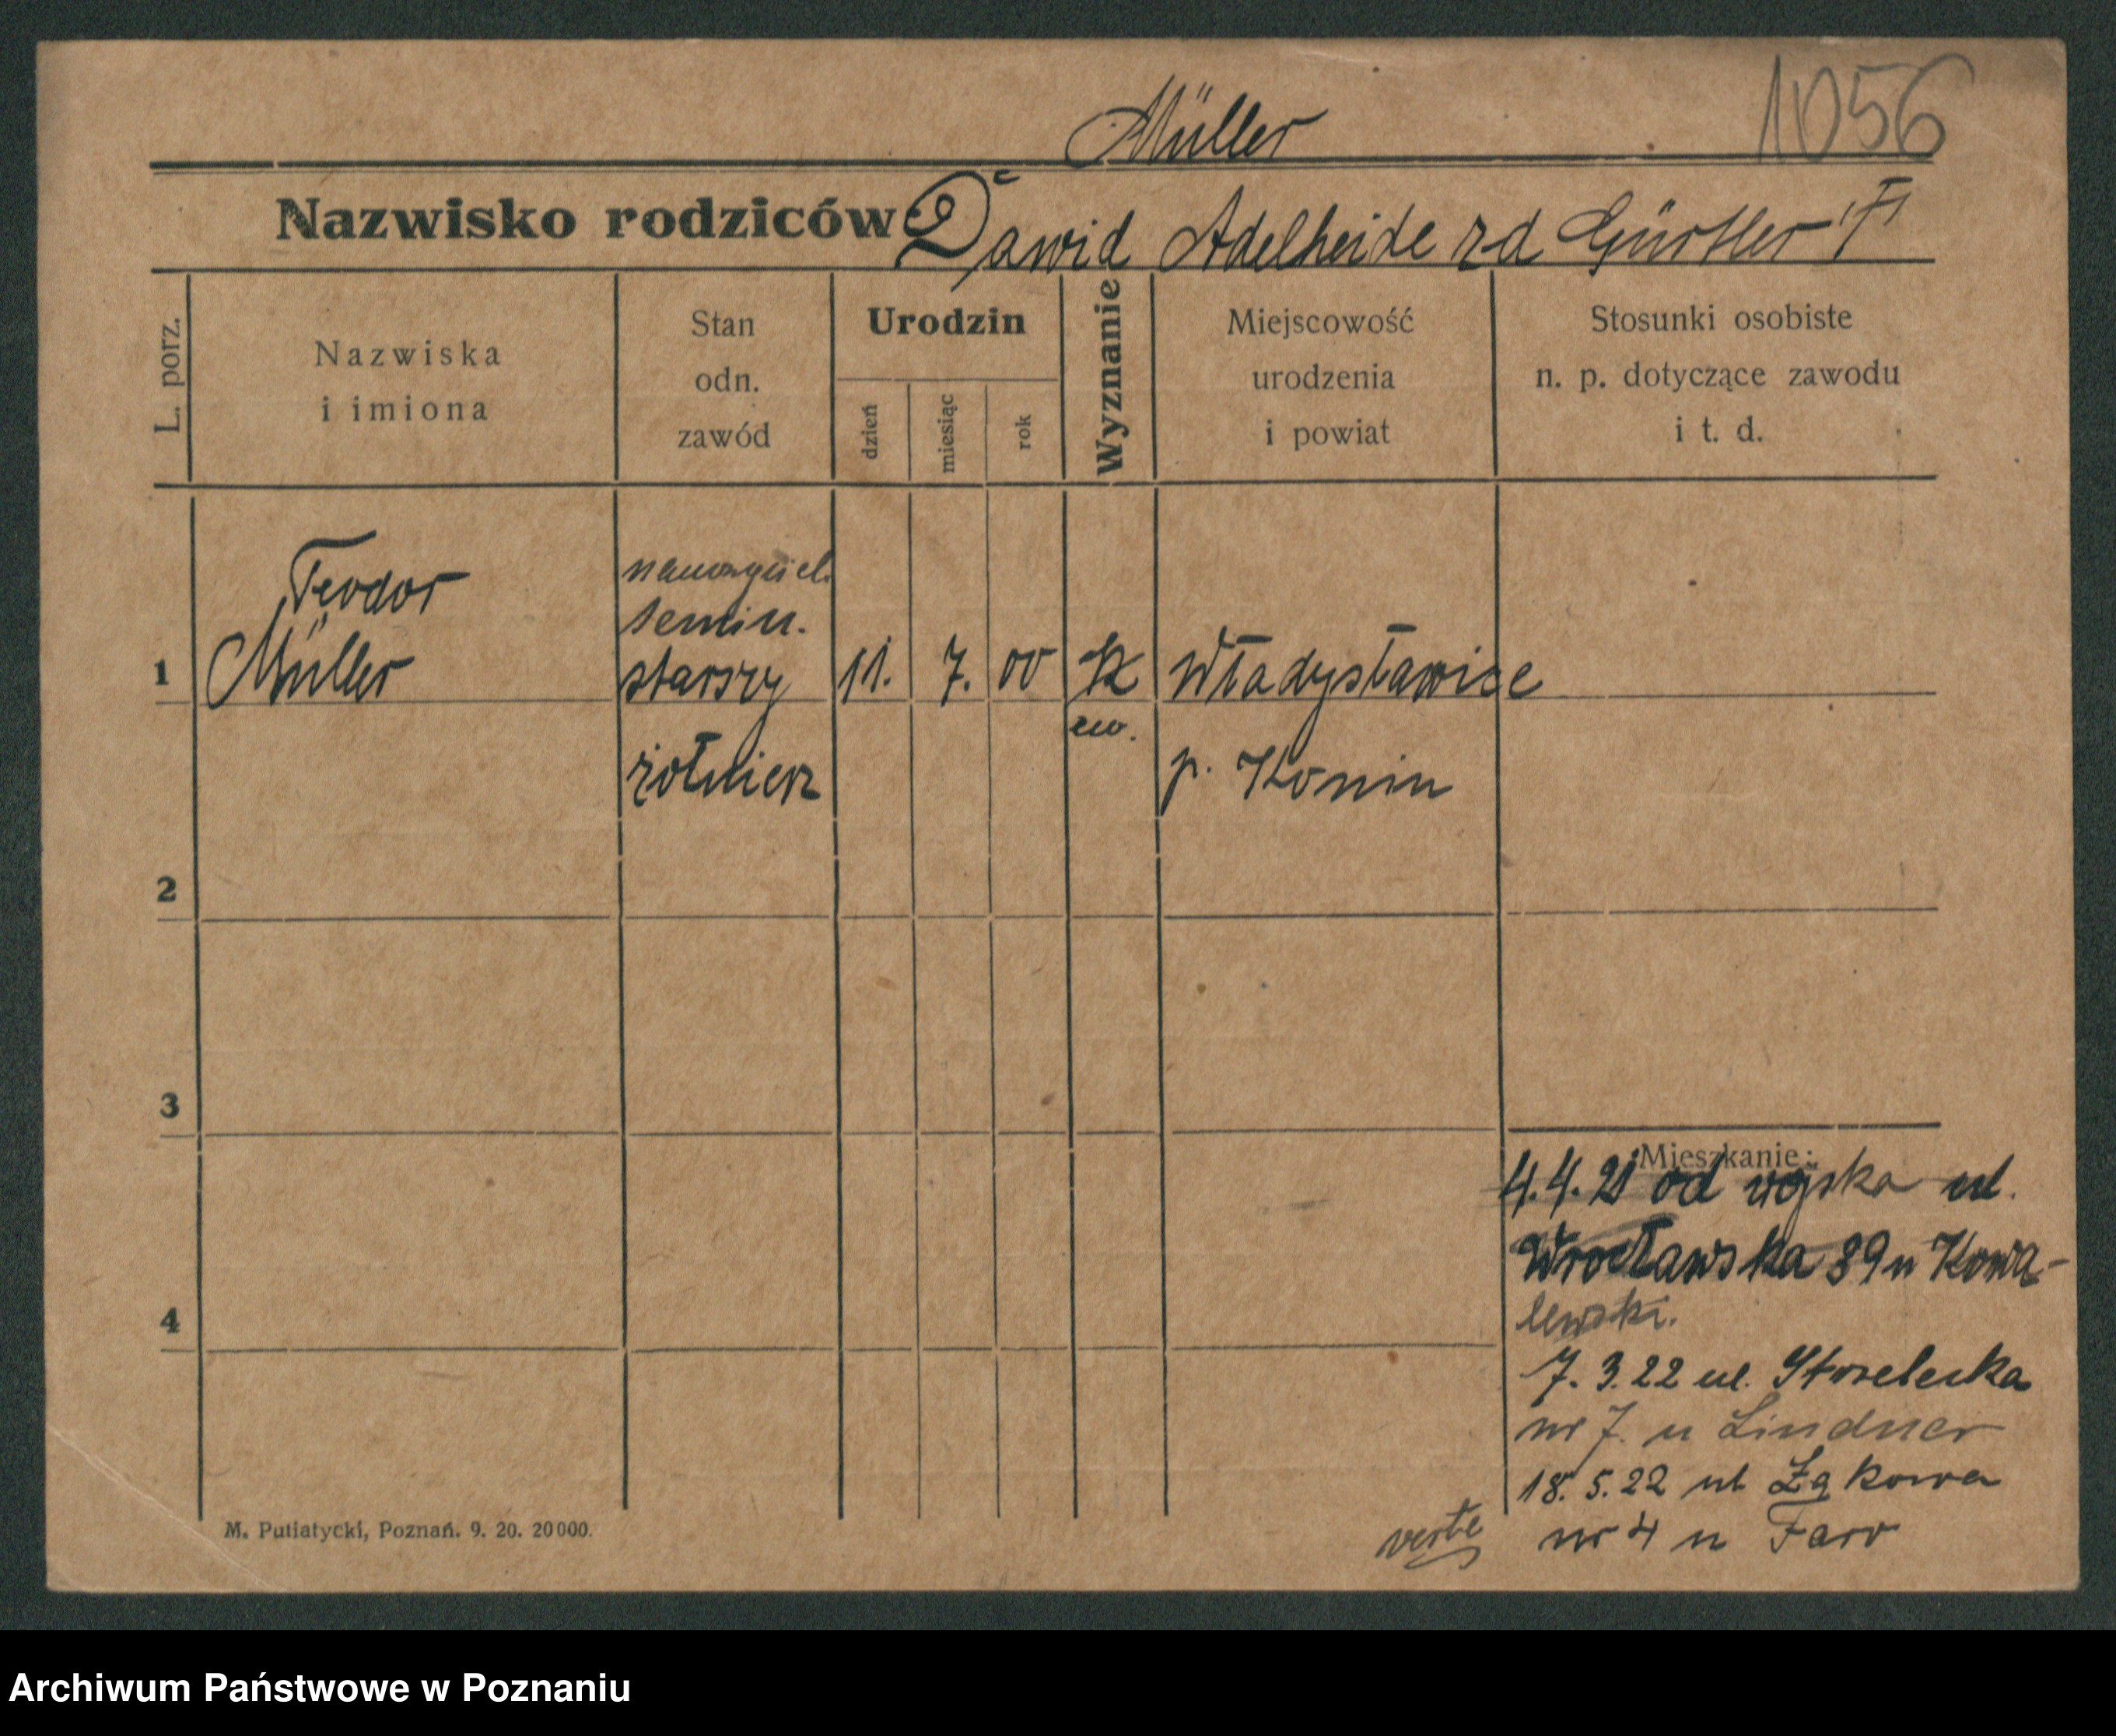 1056
Müller
Nazwisko rodziców Dawid Adelheide zd Gürtler
L. porz.
Nazwiska
i imiona
Stan
odn.
zawód
Urodzin
dzień
miesiąc
rok
Wyznanie
Miejscowość
urodzenia
i powiat
Stosunki osobiste
n. p. dotyczące zawodu
i t. d.
Teodor
nauczyciel.
semin.
1 Müller starszy 11. 7. 00 k Władysławice
ew.
żołnierz p. Konin
2
3
4
Mieszkanie:
4.4.21 od wojska ul.
Wrocławska 39 u Kowa-
lewski.
7. 3. 22 ul. Strzelecka
nr 7. u Lindner
18. 5. 22 ul Łąkowa
nr 4 u Faro
verte
M. Putiatycki, Poznań. 9. 20. 20000.
Archiwum Państwowe w Poznaniu